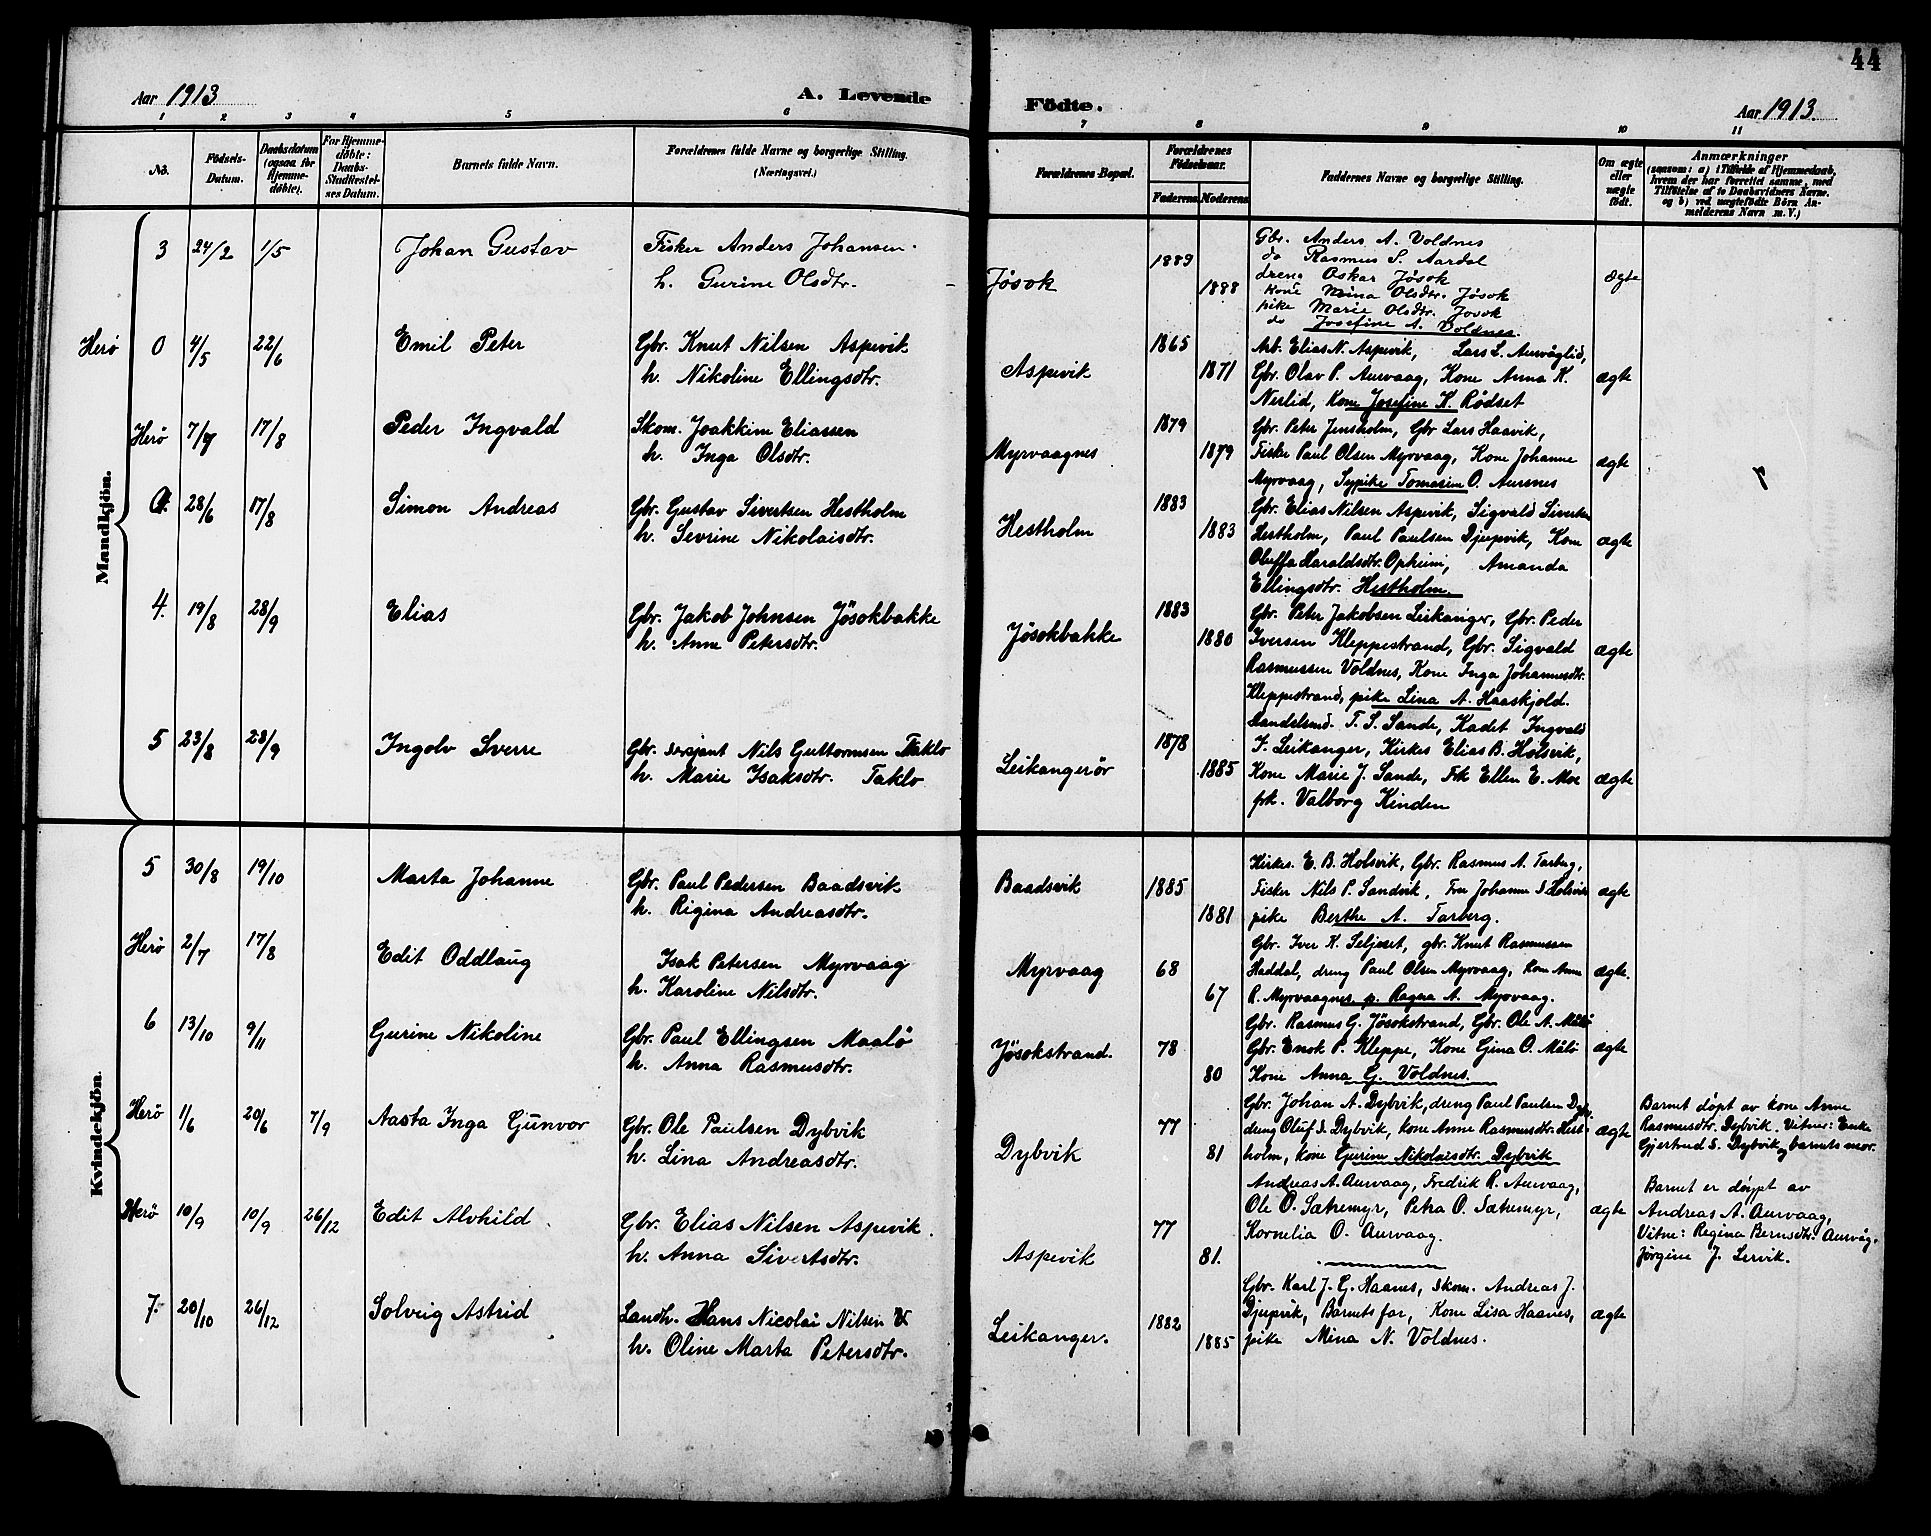 44
Aar 1913
A. Levende
Födte.
Aar 1913.
1 2 3 4 5 6 7 8 9 10 11
No.
Födsels-Datum.
Daabsdatum (ogsaa for Hjemme-döbte).
For Hjemme-döbte: Daabs-Stadfestel-ses Datum.
Barnets fulde Navn.
Forældrenes fulde Navne og borgerlige Stilling.
(Næringsvei.)
Forældrenes Bopæl.
Forældrenes Födselsaar.
Faderens Moderens
Faddernes Navne og borgerlige Stilling.
Om ægte eller uægte födt.
Anmærkninger
(saasom: a) i Tilfælde af Hjemmedaab,
hvem der har forrettet samme, med
Tilföielse af to Daabsvidners Navne.
og b) ved uægtefödte Börn An-
melderens Navn m. V.)
Mandkjön.
3 24/2 1/5 Johan Gustav
Fisker Anders Johansen.
h. Gurine Olsdtr.
Jösok 1889 1888
Gbr. Anders A. Voldnes
do Rasmus S. Aardal
dreng Oskar Jösok
kone Mina Olsdtr. Jösok
pike Marie Olsdtr. Jösok
do Josefine A. Voldnes.
ægte
Herö 0 4/5 22/6 Emil Peter
Gbr. Knut Nilsen Aspevik
h. Nikoline Ellingsdtr.
Aspevik 1865 1871
Arb. Elias N. Aspevik, Lars L. Aurvåglid,
Gbr. Olav P. Aurvaag, Kone Anna K.
Nerlid, Kone Josefine K. Rödset
ægte
Herö 7/7 17/8 Peder Ingvald
Skom. Joakkim Eliassen
h. Inga Olsdtr.
Myrvaagnes 1879 1879
Gbr. Peter Jensholm, Gbr Lars Haavik,
Fiske Paul Olsen Myrvaag, Kone Johanne
Myrvaag, Sypike Tomarine O. Aursnes
ægte
0. 28/6 17/8 Simon Andreas
Gbr. Gustav Sivertsen Hestholm
h. Sevrine Nikolaisdtr.
Hestholm 1883 1883
Gbr. Elias Nilsen Aspevik, Sigvald Sivertsen
Hestholm, Paul Paulsen Djupvik, Kone
Oluffa Haraldsdtr. Opheim, Amanda
Ellingsdtr. Hestholm.
ægte
4. 19/8 28/9 Elias
Gbr. Jakob Johnsen Jösokbakke
h. Anne Petersdtr.
Jösokbakke 1883 1880
Gbr. Peter Jakobsen Leikanger, Gbr. Peder
Iversen Kleppestrand, Gbr. Sigvald
Rasmussen Voldnes, Kone Inga Johannesdtr.
Kleppestrand, pike Lina A. Haaskjold.
ægte
5 23/8 28/9 Ingolv Sverre
Gbr. sersjant Nils Guttormsen Taklo
h. Marie Isaksdtr. Taklo
Leikangerör 1878 1885
Handelsmd. T. S. Sande, Kadet Ingvald
J. Leikanger, Kirkes Elias B. Holsvik,
Kone Marie J. Sande, Frk Ellen E. Moe
frk. Valborg Kinden
ægte
Kvindekjön.
5 30/8 19/10 Marta Johanne
Gbr. Paul Pedersen Baadsvik
h. Regina Andreasdtr.
Baadsvik 1885 1881
Kirkes. E. B. Holsvik, Gbr. Rasmus A. Tarberg,
Fisker Nils P. Sandvik, Fru Johanne S Holsvik
pike Berthe A. Tarberg.
ægte
Herö 2/7 17/8 Edit Oddlaug
Isak Petersen Myrvaag
h. Karoline Nilsdtr.
Myrvaag 68 67
Gbr. Iver K. Seljeset, gbr. Knut Rasmussen
Haddal, dreng Paul Olsen Myrvaag, Kone Anne
R. Myrvaagnes p. Ragna A. Myrvaag.
ægte.
6 13/10 9/11 Gurine Nikoline
Gbr. Paul Ellingsen Maalö
h. Anna Rasmusdtr.
Jösokstrand. 78 80
Gbr. Rasmus G. Jösokstrand, Gbr. Ole A. Målö
Gbr. Enok P. Kleppe, Kone Gina O. Målö
Kone Anna G. Voldnes.
ægte
Herö 1/6 20/6 7/9 Aasta Inga Gunvor
Gbr. Ole Paulsen Dybvik
h. Lina Andreasdtr.
Dybvik 77 81
Gbr. Johan A. Dybvik, dreng Paul Paulsen Dybv.
dreng Oluf S. Dybvik, kone Anne Rasmusdtr. Hest-
holm, kone Gurine Nikolaisdtr. Dybvik
ægte
Barnet döpt av kone Anne
Rasmusdtr. Dybvik. Vitner: Enke
Gjertrud S. Dybvik og barnets mor.
Herö 10/9 10/9 26/12 Edit Alvhild.
Gbr. Elias Nilsen Aspevik.
h. Anna Sivertsdtr.
Aspevik 77 81.
Andreas A. Aurvaag, Fredrik R. Aurvaag,
Ole O. Sætremyr, Petra O. Sætremyr,
Kornelia O. Aurvaag.
ægte
Barnet er döypt av
Andreas A. Aurvaag,
Vitne: Regina Berntsdtr. Aurvåg.
Jörgine J. Lervik.
7. 20/10 26/12 Solveig Astrid
Landh. Hans Nicolai Nilsen &
h. Oline Marta Petersdtr.
Leikanger. 1882 1885
Gbr. Karl J. G. Haanes, Skom. Andreas J.
Djupvik, Barnets far, Kone Lisa Haanes,
pike Mina N. Voldnes.
ægte